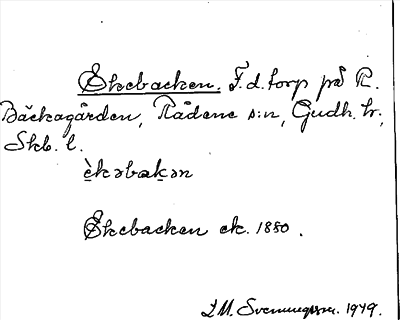 Ekebacken. F.d. torp på R.
Bäckagården, Rådene s:n, Gudh. hr,
Skb. l.
èkəbakən
Ekebacken ek. 1880.
L M. Svenungsson. 1949.